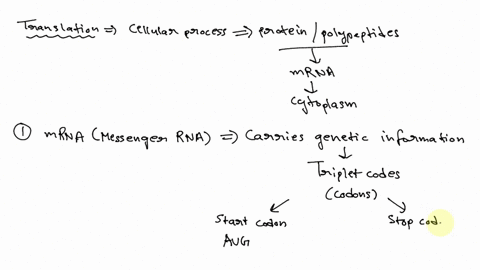 Translation ⇒ Cellular process ⇒ protein / polypeptides
↓
mRNA
↓
Cytoplasm
① mRNA (Messenger RNA) ⇒ Carries genetic information
↓
Triplet codes
(codons)
Start codon Stop cod.
AUG